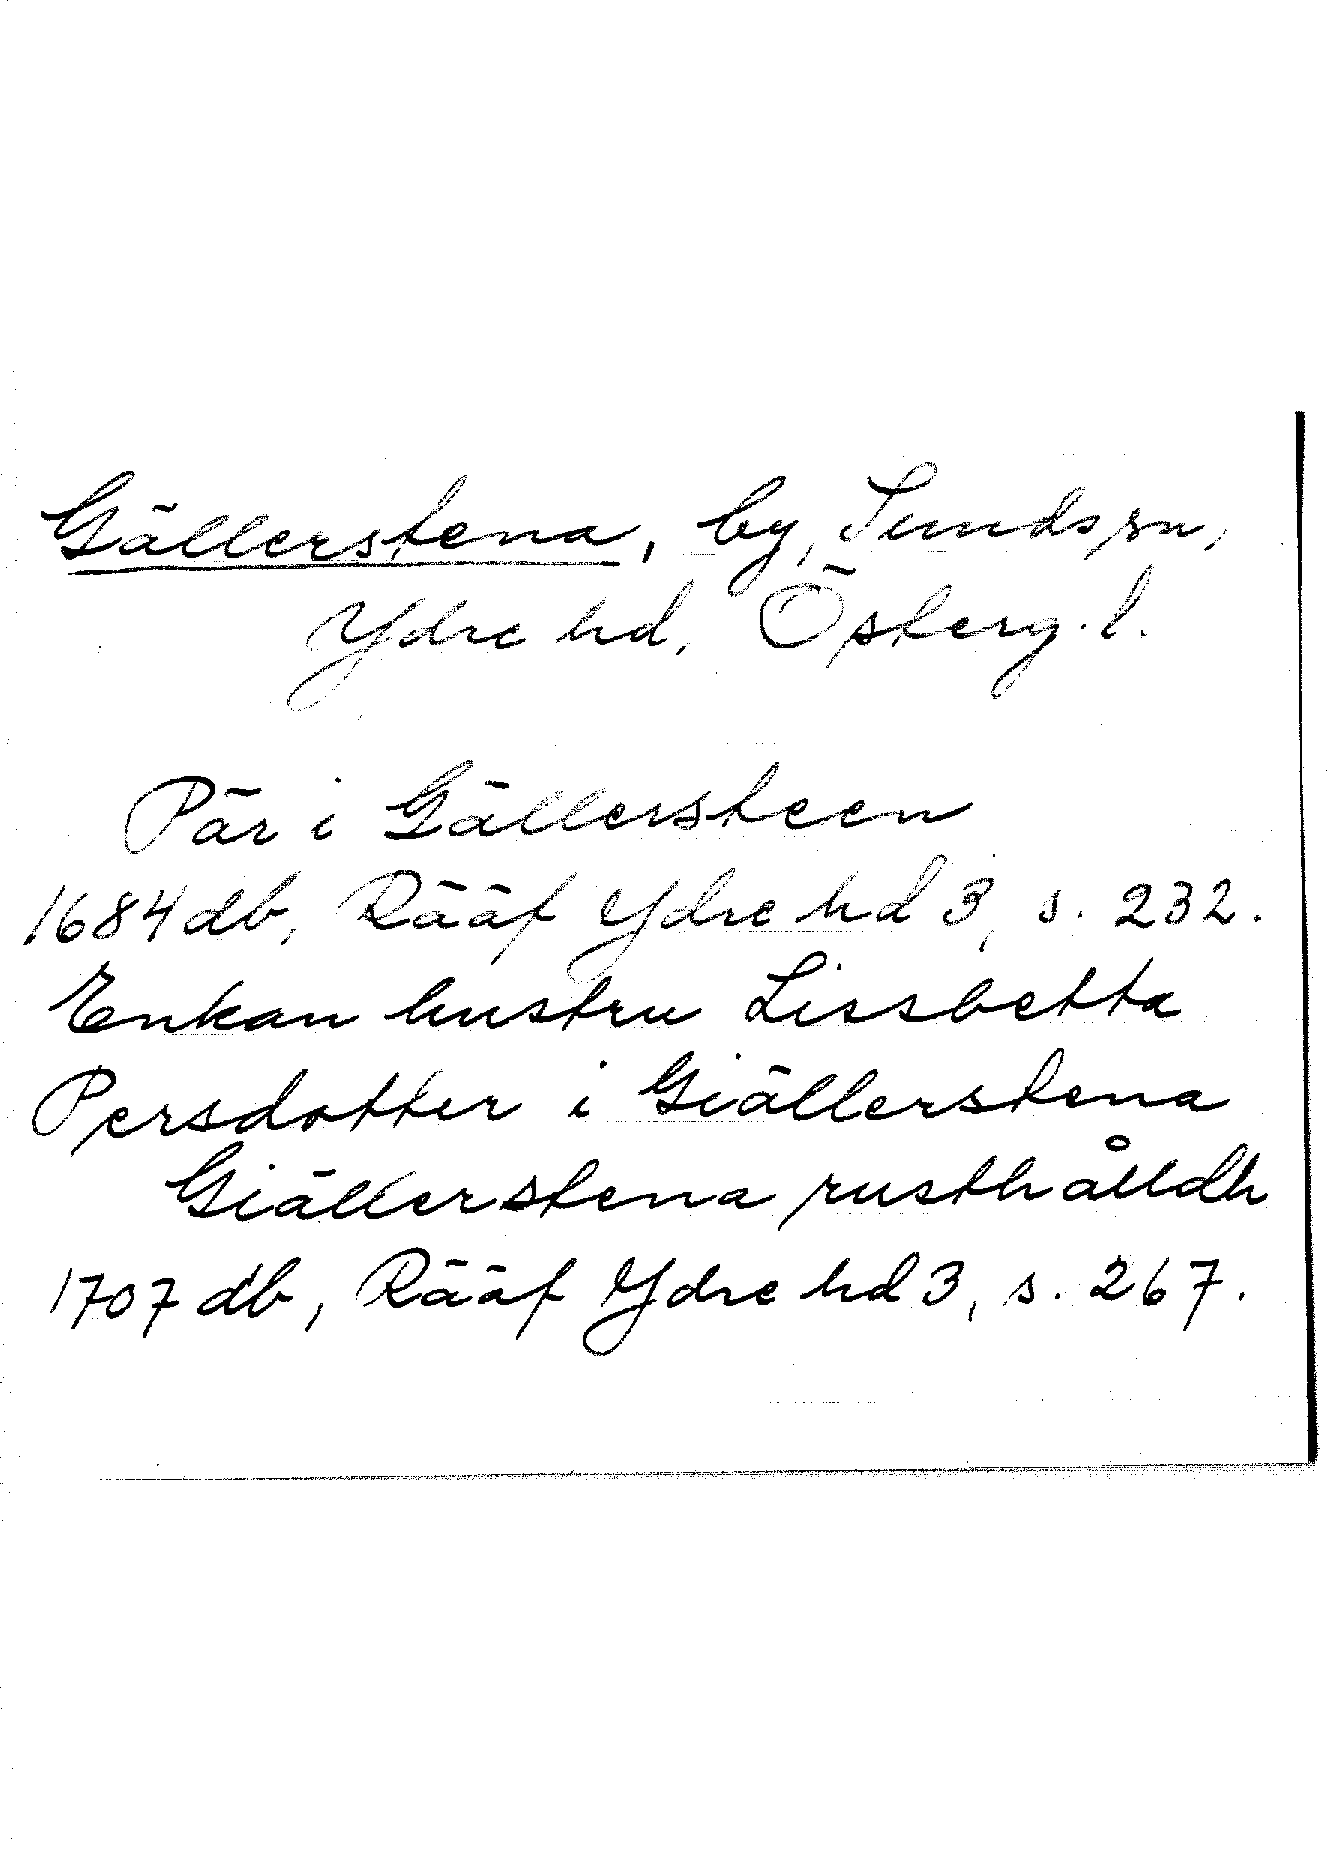 Gällerstena, by, Sunds sn,
Ydre hd, Österg. l.
Pär i Gällersteen
1684 db, Rääf Ydre hd 3, s. 232.
Enkan hustru Lissbetta
Persdotter i Giällerstena
Giällerstena rusthålldh
1707 db, Rääf Ydre hd 3, s. 267.